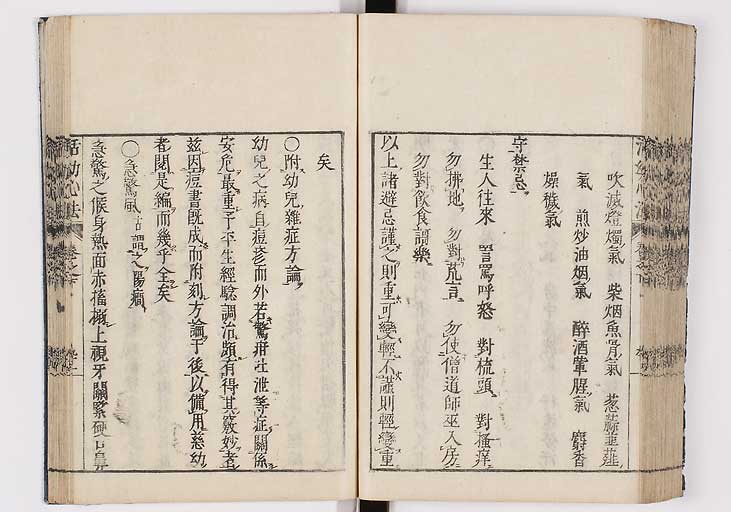 吹滅燈燭氣　柴烟魚骨氣　葱蒜韭薤
氣　煎炒油烟氣　醉酒葷腥氣　麝香
燥穢氣
守禁忌
生人往來　詈罵呼怒　對梳頭　對搔痒
勿掃地　勿對荒言　勿使僧道師巫入房
勿對飲食謌樂
以上諸避忌謹之則重可變輕不謹則輕變重
矣
〇附幼兒雜症方論
幼兒之病自痘疹而外若驚疳吐泄等症關係
安危最重予平生經驗調治頗有得其竅妙者
茲因痘書既成而附刻方論于後以備用慈幼
者閱是編而幾乎全矣
〇急驚風古謂之陽癇
急驚之候身熱而赤搐搦上視牙關緊硬口鼻
活幼心法